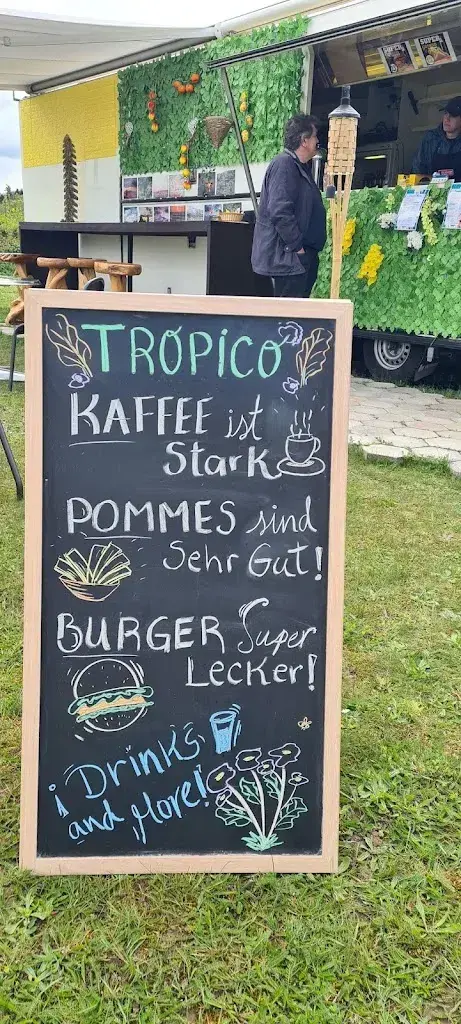 TROPICO
KAFFEE ist
Stark
POMMES sind
Sehr Gut!
BURGER Super
LECKER!
¡Drinks
and More!
SUPER